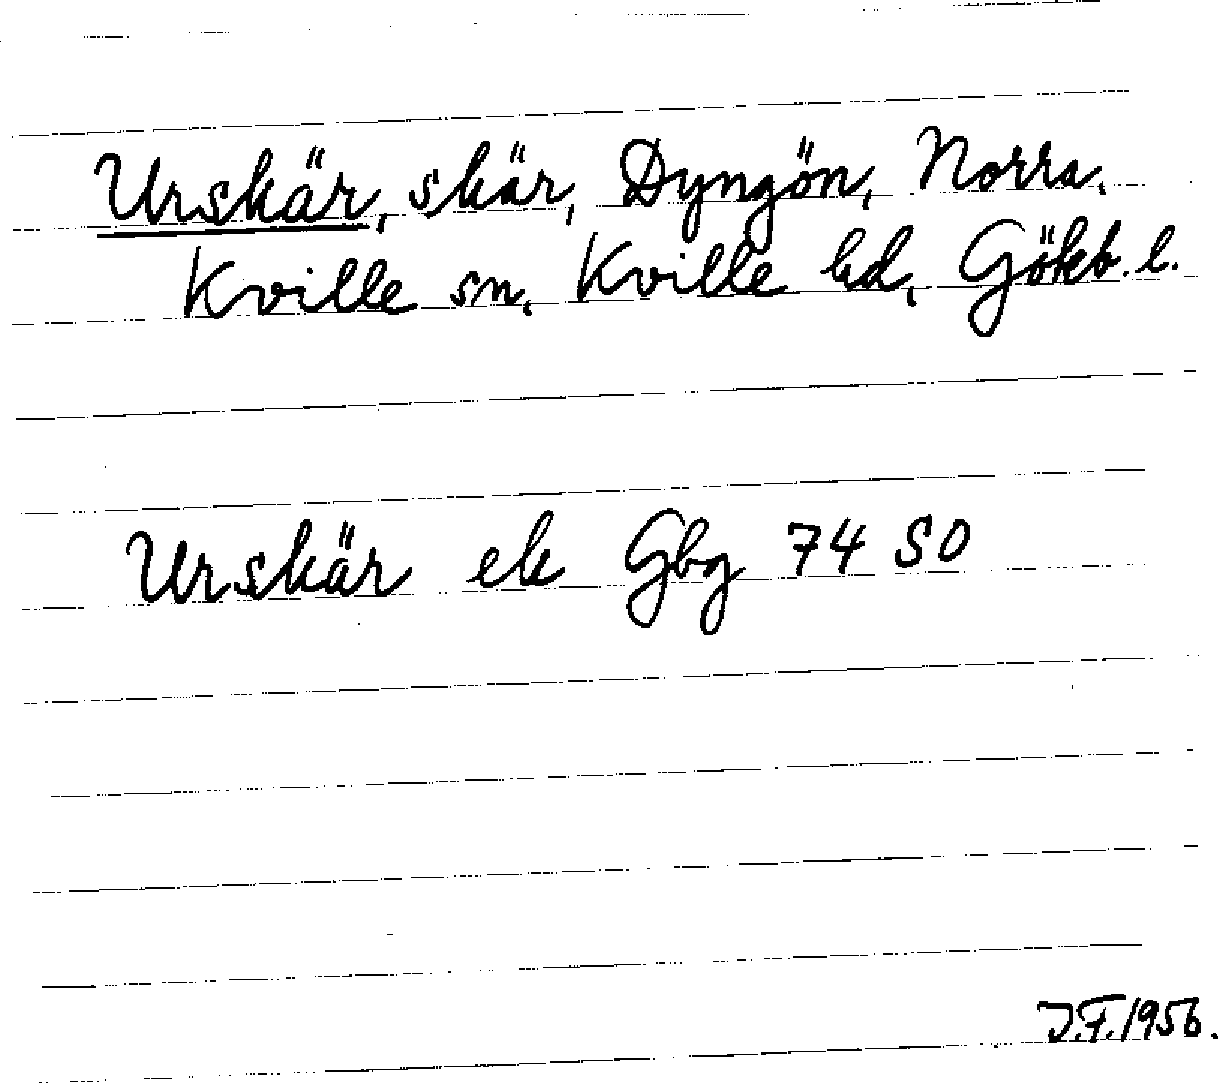 Urskär, skär, Dyngön, Norra.
Kville sn, Kville hd, Gökb. l.
Urskär ek Gbg 74 SO
J.F. 1956.